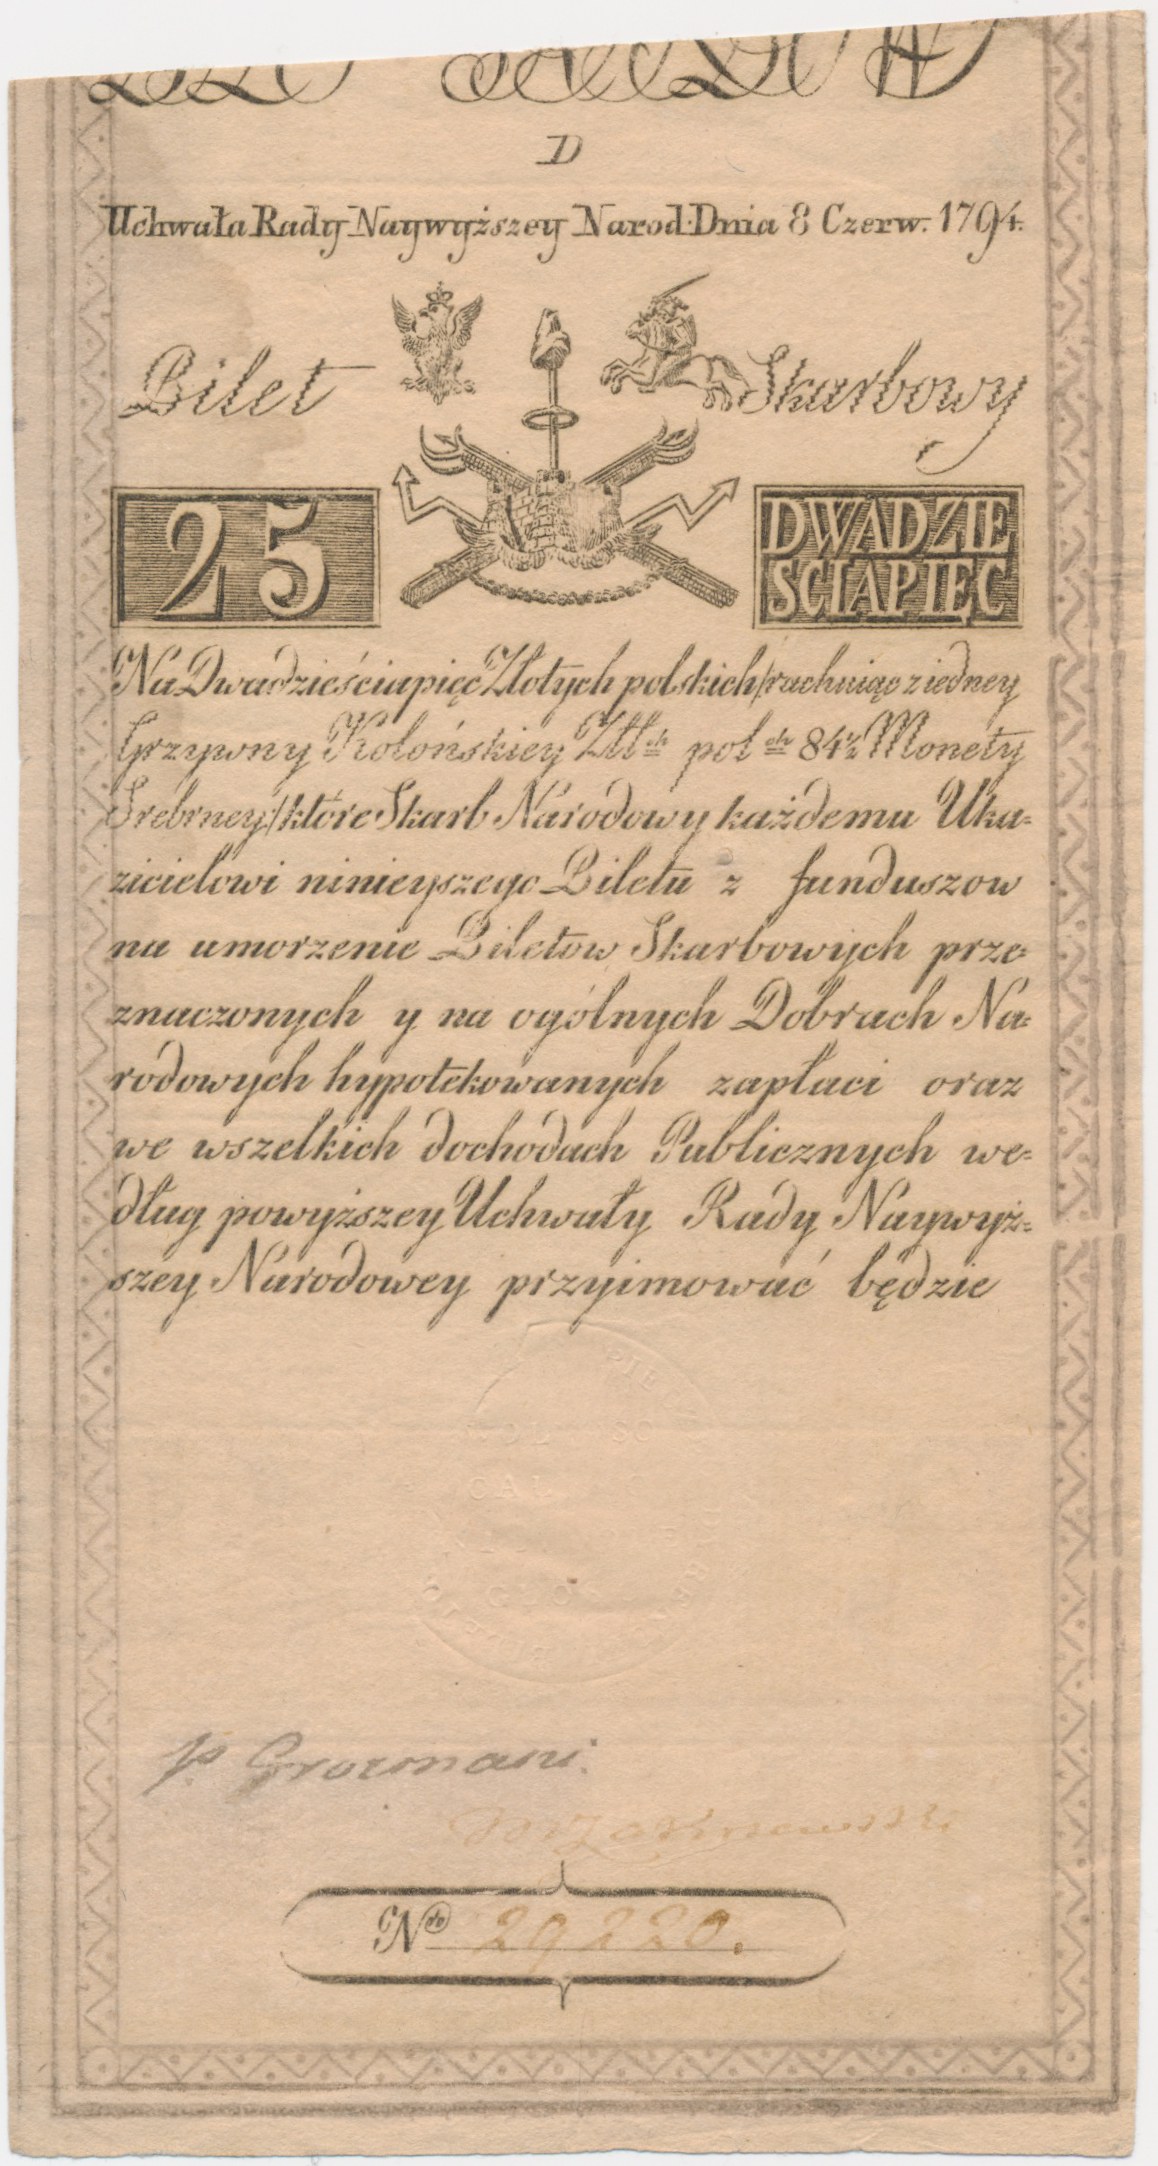 D
Uchwała Rady Naywyższey Narod. Dnia 8 Czerw. 1794.
Bilet Skarbowy
25
DWADZIE
SCIAPIĘC
Na Dwadzieściapięć Złotych polskich /:rachuiąc z iedney
Grzywny Kolońskiey Złł. pol. 84½ Monety
Srebrney:/ które Skarb Narodowy każdemu Uka=
zicielowi ninieyszego Biletu z funduszow
na umorzenie Biletow Skarbowych prze=
znaczonych y na ogólnych Dobrach Na=
rodowych hypotekowanych zapłaci oraz
we wszelkich dochodach Publicznych we=
dług powyższey Uchwały Rady Naywyż=
szey Narodowey przyimować będzie
No 29220.